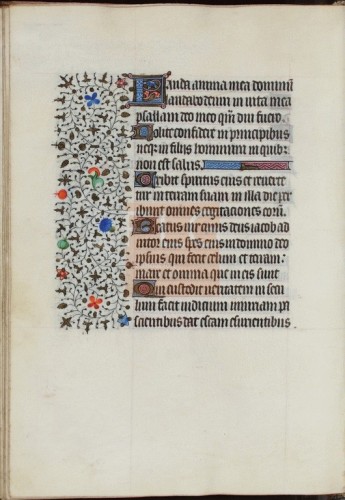 Lauda anima mea dominū
laudabo deum in vita mea
psallam deo meo qm̄ diu fuero.
Nolite confidere in principibus
neqȝ in filijs hominum in quibȝ
non est salus.
Exibit spiritus eius et reverte
tur in terram suam in illa die per
ibunt omnes cogitaciones eorū.
Beatus cuius deus iacob ad
iutor eius spes eius in domino deo
ipsius qui fecit celum et terram:
mare et omnia que in eis sunt
Qui custodit veritatem in secu
lum facit iudicium iniuriam pa
scientibus dat escam esurientibus.